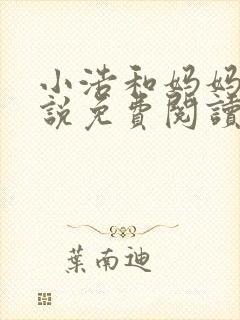 小浩和妈妈
說免費閱讀
葉南迪